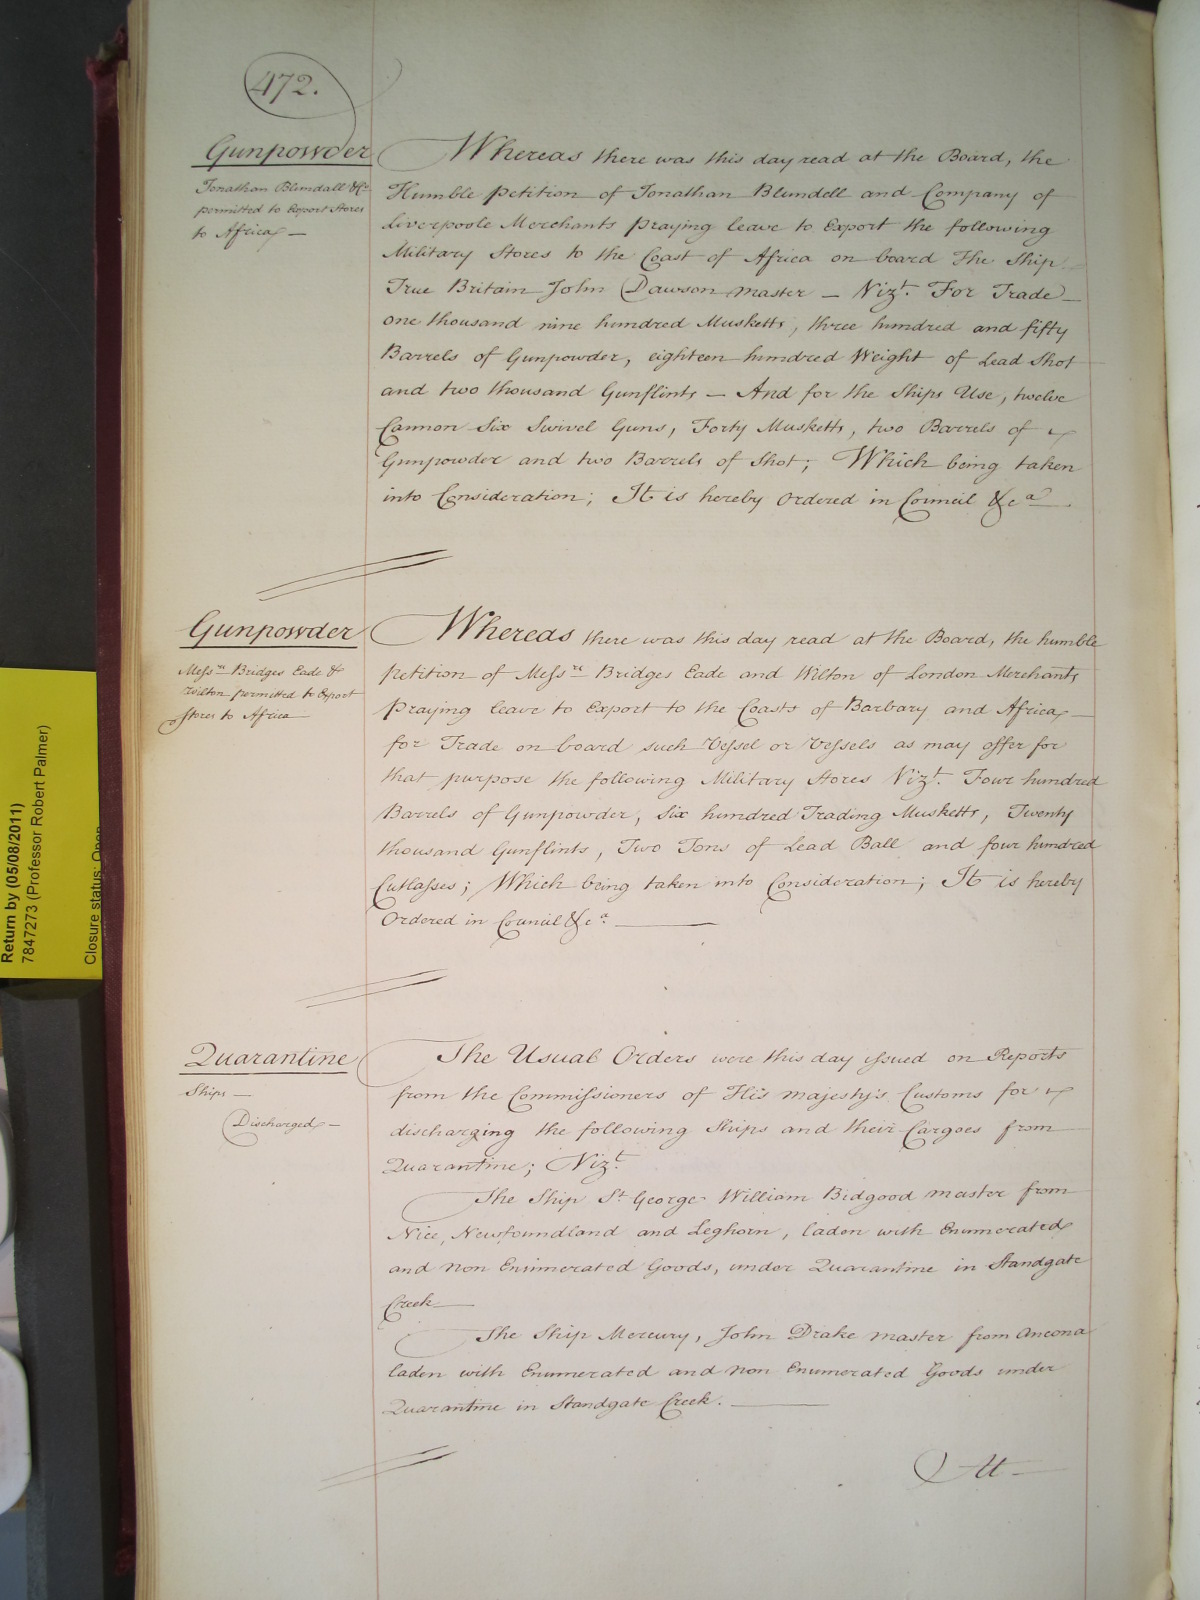 472.
Gunpowder
Jonathan Blundall &c
permitted to Export Stores
to Africa —
Whereas there was this day read at the Board, the
Humble Petition of Jonathan Blundell and Company of
Liverpoole Merchants Praying leave to Export the following
Military Stores to the Coast of Africa on board The Ship
True Britain John Dawson Master — Vizt. For Trade —
one thousand nine hundred Musketts, three hundred and fifty
Barrels of Gunpowder, eighteen hundred Weight of Lead Shot
and two thousand Gunflints — And for the Ships Use, twelve
Cannon Six Swivel Guns, Forty Musketts, two Barrels of
Gunpowder and two Barrels of Shot; Which being taken
into Consideration; It is hereby Ordered in Council &ca —
Gunpowder
Messrs Bridges Eade &
Wilton permitted to Export
Stores to Africa
Whereas there was this day read at the Board, the humble
petition of Messrs Bridges Eade and Wilton of London Merchants
Praying leave to Export to the Coasts of Barbary and Africa —
for Trade on board such Vessel or Vessels as may offer for
that purpose the following Military Stores Vizt. Four hundred
Barrels of Gunpowder, Six hundred Trading Musketts, Twenty
thousand Gunflints, Two Tons of Lead Ball and four hundred
Cutlasses; Which being taken into Consideration; It is hereby
Ordered in Council &ca. —
Quarantine
Ships —
Discharged —
The Usual Orders were this day issued on Reports
from the Commissioners of His Majesty's Customs for
discharging the following Ships and their Cargoes from
Quarantine; Vizt.
The Ship St. George William Bidgood Master from
Nice, Newfoundland and Leghorn, laden with Enumerated
and non Enumerated Goods, under Quarantine in Standgate
Creek —
The Ship Mercury, John Drake Master from Ancona
laden with Enumerated and non Enumerated Goods under
Quarantine in Standgate Creek. —
At —
Return by (05/08/2011)
7847273 (Professor Robert Palmer)
Closure status: Open